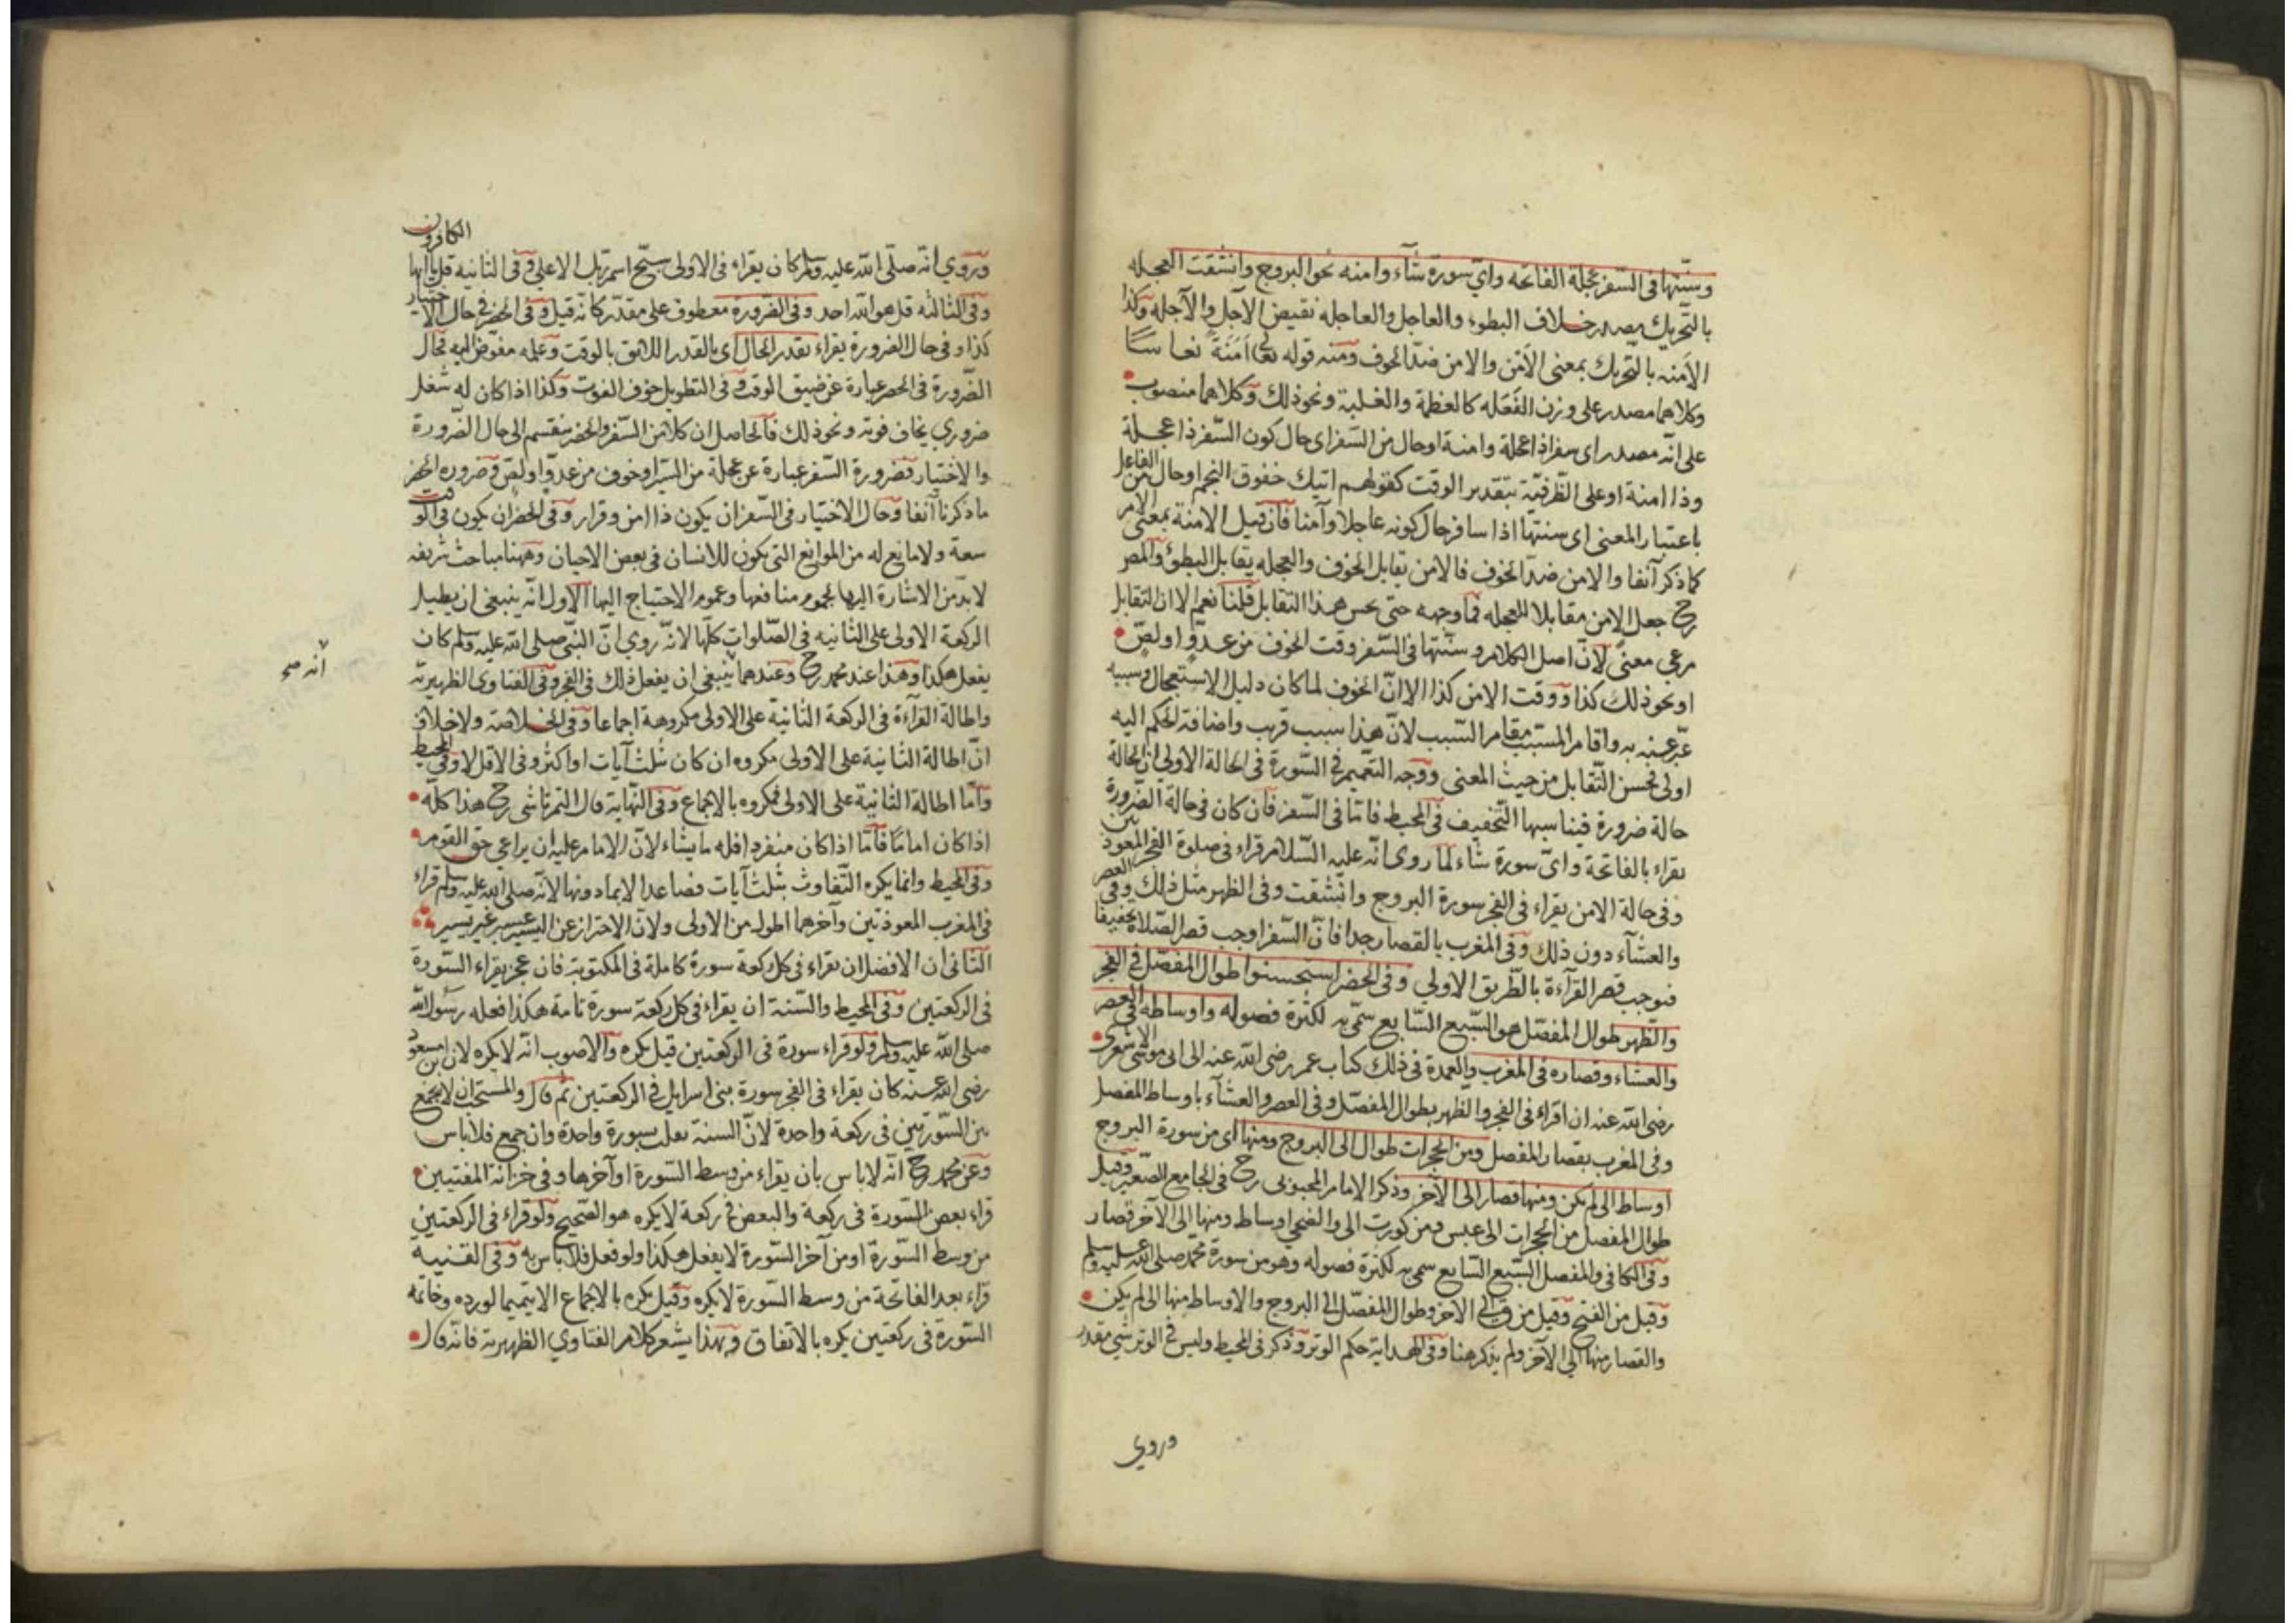 وسنّتها في السّفر عجلة الفاتحه وايّ سورة شآء وامنه نحو البروج وانشقت العجله
بالتّحريك مصدر خلاف البطوء والعاجل والعاجله نقيض الآجل والآجله وكذا
الامنه بالتّحريك بمعنى الأمْن والامن ضدّ الخوف ومنه قوله تعالى أمَنَةً نعاسًا
وكلاهما مصدر على وزن الفَعَله كالعظمة والغلبة ونحو ذلك وكلاهما منصوب
على انّه مصدر اى سفرا ذا عجلة وامنة او حال من السّفر اى حال كون السّفر ذا عجلة
وذا امنة او على الظّرفيّة بتقدير الوقت كقولهم اتيك خفوق النجم او حال من الفاعل
باعتبار المعنى اى سنتها اذا سافر حال كونه عاجلا وآمنا فان قيل الامنة بمعنى الامر
كما ذكر آنفا والامن ضدّ الخوف فالامن يقابل الخوف والعجله يقابل البطؤ والمصر
رح جعل الامن مقابلا للعجله فما وجهه حتى يحسن هذا التقابل قلنا نعم الا ان التقابل
مرعي معنًى لانّ اصل الكلام وسنّتها في السّفر وقت الخوف من عدوّ او لصّ
او نحو ذلك كذا ووقت الامن كذا الا انّ الخوف لما كان دليل الاستعجال وسببه
عبّر عنه به واقام المسبّب مقام السّبب لانّ هذا سبب قريب واضافة الحكم اليه
اولى فحسن التّقابل من حيث المعنى ووجه التّعميم في السّورة في الحالة الاولى ان الحالة
حالة ضرورة فيناسبها التّخفيف في المحيط فامّا في السّفر فان كان في حالة الضّرورة
يقراء بالفاتحة وايّ سورة شاء لما روى انّه عليه السّلام قراء في صلوة الفجر المعوذتين
وفي حالة الامن يقراء في الفجر سورة البروج وانشقت وفى الظهر مثل ذلك وفي العصر
والعشآء دون ذلك وفى المغرب بالقصار جدا فانّ السّفر اوجب قصر الصّلاة تخفيفا
فنوجب قصر القرآءة بالطّريق الاولي وفى الحضر استحسنوا طوال المفصّل في الفجر
والظّهر طوال المفصّل هو السّبع السّابع سمّى به لكثرة فصوله واوساطه في العصر
والعشاء وقصاره في المغرب والعمدة في ذلك كتاب عمر رضى الله عنه الى ابى موسى الاشعرى
رضى الله عنه ان اقراء في الفجر والظّهر بطوال المفصّل وفى العصر والعشآء باوساط المفصل
وفى المغرب بقصار المفصل ومن الحجرات طوال الى البروج ومنها اى من سورة البروج
اوساط الى لم يكن ومنها قصار الى الآخر وذكر الامام المحبوبى رح في الجامع الصّغير وقيل
طوال المفصل من الحجرات الى عبس ومن كورت الى والضّحى اوساط ومنها الى الآخر قصار
وفى الكافى والمفصل السّبع السّابع سمى به لكثرة فصوله وهو من سورة محمد صلى الله عليه وسلم
وقيل من الفتح وقيل من ق الى الآخر وطوال المفصّل الى البروج والاوساط منها الى لم يكن
والقصار منها الى الآخر ولم يذكر هنا وفى الهداية حكم الوتر وذكر في المحيط وليس في الوتر شي مقدر
وروي
وروي انّه صلّى الله عليه وسلم كان يقراء في الاولى سبّح اسم ربك الاعلي وفى الثانيه قل يا ايّها الكافرون
وفى الثالثه قل هو الله احد وفى الضّرورة معطوف على مقدّر كانّه قيل وفى الحضر في حال الاختيار
كذا وفي حال الضرورة يقراء بقدر الحال اى بالقدر اللائق بالوقت وعلمه مفوّض اليه فحال
الضّرورة في الحضر عبارة عن ضيق الوقت وفى التطويل خوف الفوت وكذا اذا كان له شغل
ضروري يخاف فوته ونحو ذلك فالحاصل ان كلا من السّفر والحضر ينقسم الى حال الضّرورة
والاختيار فضرورة السّفر عبارة عن عجلة من السّير او خوف من عدوّ او لصّ وضروره الحضر
ما ذكرنا آنفا وحال الاختيار في السّفر ان يكون ذا امن وقرار وفى الحضر ان يكون في الوقت
سعة ولا مانع له من الموانع التى يكون للانسان في بعض الاحيان وههنا مباحث شريفه
لابدّ من الاشارة اليها لعموم منافعها وعموم الاحتياج اليها الاول انّه ينبغى ان يطيل
الركعة الاولى على الثانيه في الصّلوات كلّها لانّه روي انّ النبّى صلى الله عليه وسلم كان
يفعل هكذا وهذا عند محمد رح وعندهما ينبغى ان يفعل ذلك في الفجر وفى الفتاوى الظهيريّه
انه صح
واطالة القرآءة في الركعة الثانية على الاولى مكروهة اجماعا وفى الخلاصة ولاخلاف
انّ اطالة الثانية على الاولى مكروه ان كان ثلث آيات او اكثر وفى الاقل لا وفى المحيط
وامّا اطالة الثانية على الاولى فمكروه بالاجماع وفى النّهاية قال التمرتاشى رح هذا كلّه
اذا كان امامًا فامّا اذا كان منفردا فله ما يشاء لانّ الامام عليه ان يراعي حق القوم
وفى المحيط وانما يكره التّفاوت بثلث آيات فصاعدا لا بما دونها لانّه صلى الله عليه وسلم قراء
في المغرب المعوذتين وآخرهما اطول من الاولى ولانّ الاحتراز عن اليسير عسير غير يسير
الثّانى ان الافضل ان يقراء في كل ركعة سورة كاملة في المكتوبة فان عجز يقراء السّورة
في الركعتين وفى المحيط والسّنة ان يقراء في كل ركعة سورة تامة هكذا فعله رسول الله
صلى الله عليه وسلم ولو قراء سورة في الركعتين قيل يكره والاصوب انّه لا يكره لان ابن مسعود
رضى الله عنه كان يقراء في الفجر سورة بنى اسرايل في الركعتين ثم قال والمستحب ان لا يجمع
بين السّورتين في ركعة واحدة لانّ السنة بسورة واحدة وان جمع فلا باس
وعن محمد رح انّه لا باس بان يقراء من وسط السّورة او آخرها وفى خزانة المفتيين
قراء بعض السّورة في ركعة والبعض في ركعة لا يكره هو الصّحيح ولو قراء في الركعتين
من وسط السّورة او من آخر السّورة لا يفعل هكذا ولو فعل فلا باس به وفى القنية
قراء بعد الفاتحة من وسط السّورة لا يكره وقيل يكره بالاجماع الا يتميما لورده وخاتمه
السّورة في ركعتين يكره بالاتفاق وبهذا يشعر كلام الفتاوي الظهيرية فانّه قال